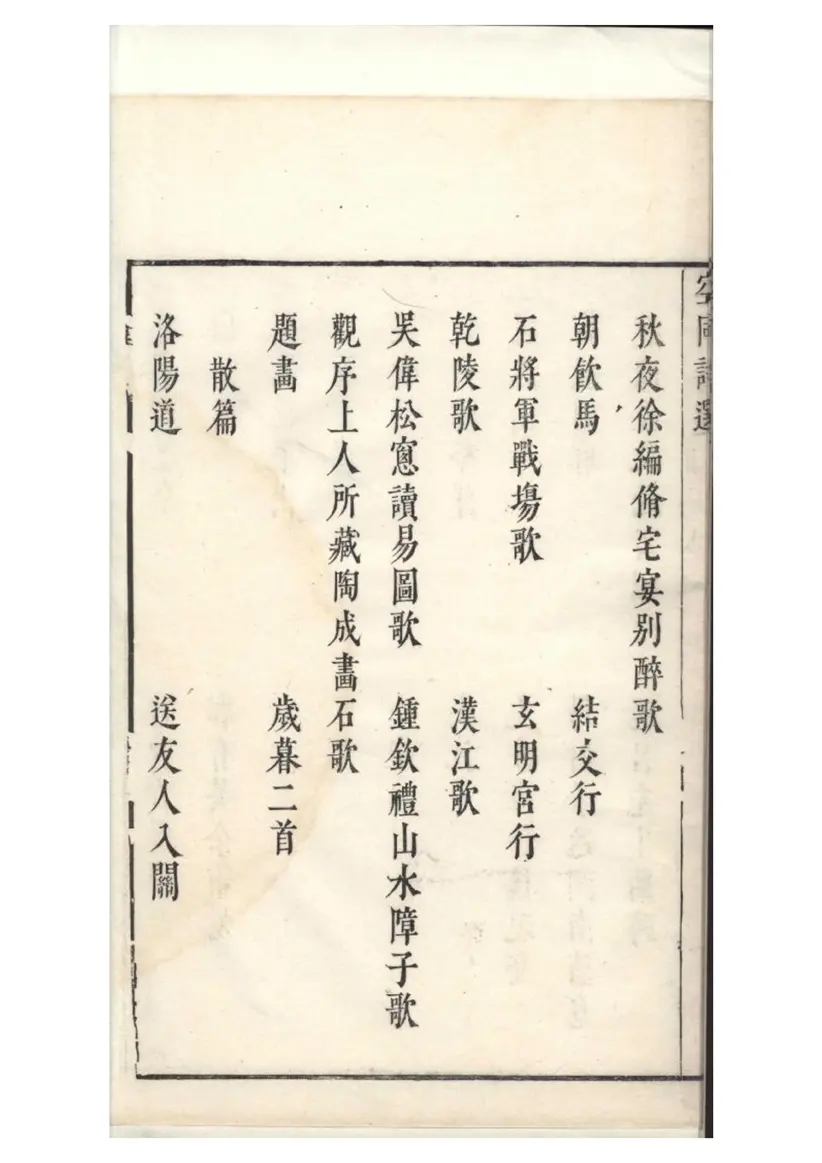 空同詩選
秋夜徐編脩宅宴別醉歌
朝飲馬　結交行
石將軍戰場歌　玄明宮行
乾陵歌　漢江歌
吳偉松窓讀易圖歌　鍾欽禮山水障子歌
觀序上人所藏陶成畵石歌
題畵　歲暮二首
散篇
洛陽道　送友人入關